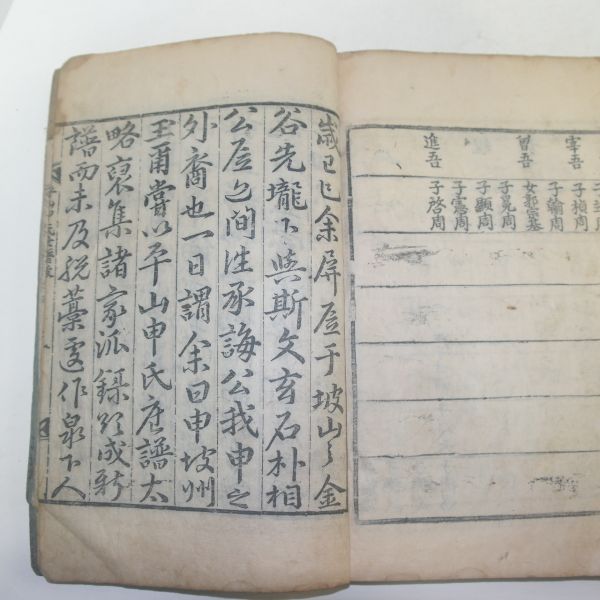 宰吾
曾吾
進吾
子楨周
子翰周
女郭崇基
子晃周
子顯周
子憲周
子啓周
歲己巳余屏居于坡山之金
谷先壠下與斯文玄石朴相
公居間往承誨公我申之
外裔也一日謂余曰申坡州
爾嘗以平山申氏譜太
略裒集諸家派錄欲成新
譜而未及脫藁遽作泉下人